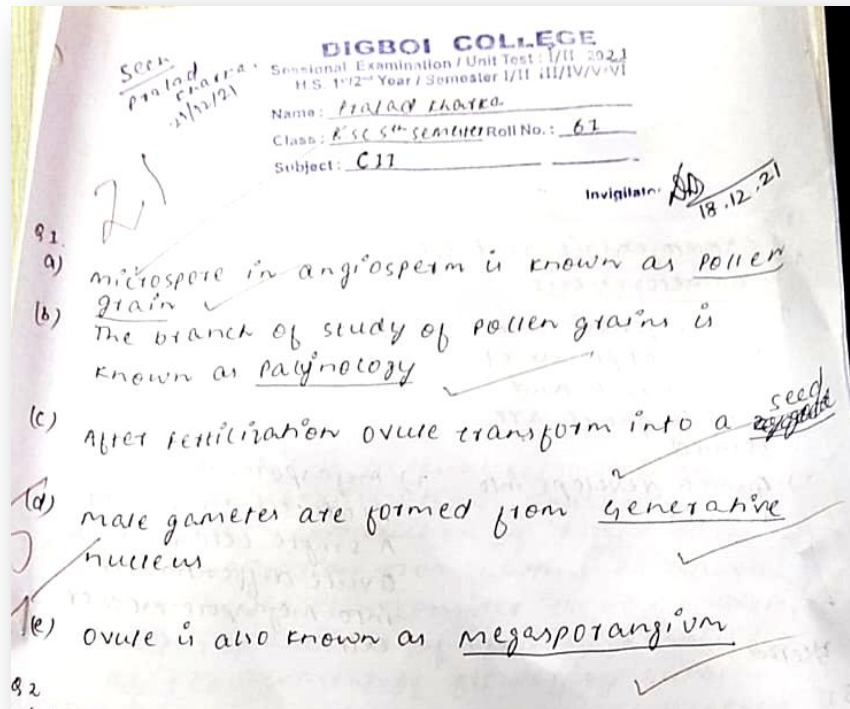 DIGBOI COLLEGE
Sessional Examination / Unit Test : I/II 2021
H.S. 1st/2nd Year / Semester I/II III/IV/V-VI
Seen
Pralad
Kharka.
21/12/21
Name : Pralad Kharka
Class : BSC 5th semester Roll No. : 61
Subject : C11
Invigilator
18.12.21
21
Q1.
a) microspore in angiosperm is known as Pollen
grain
(b) The branch of study of pollen grains is
known as Palynology
(c) After fertilization ovule transform into a seed
(d) male gametes are formed from Generative
nucleus
(e) ovule is also known as megasporangium
Q2